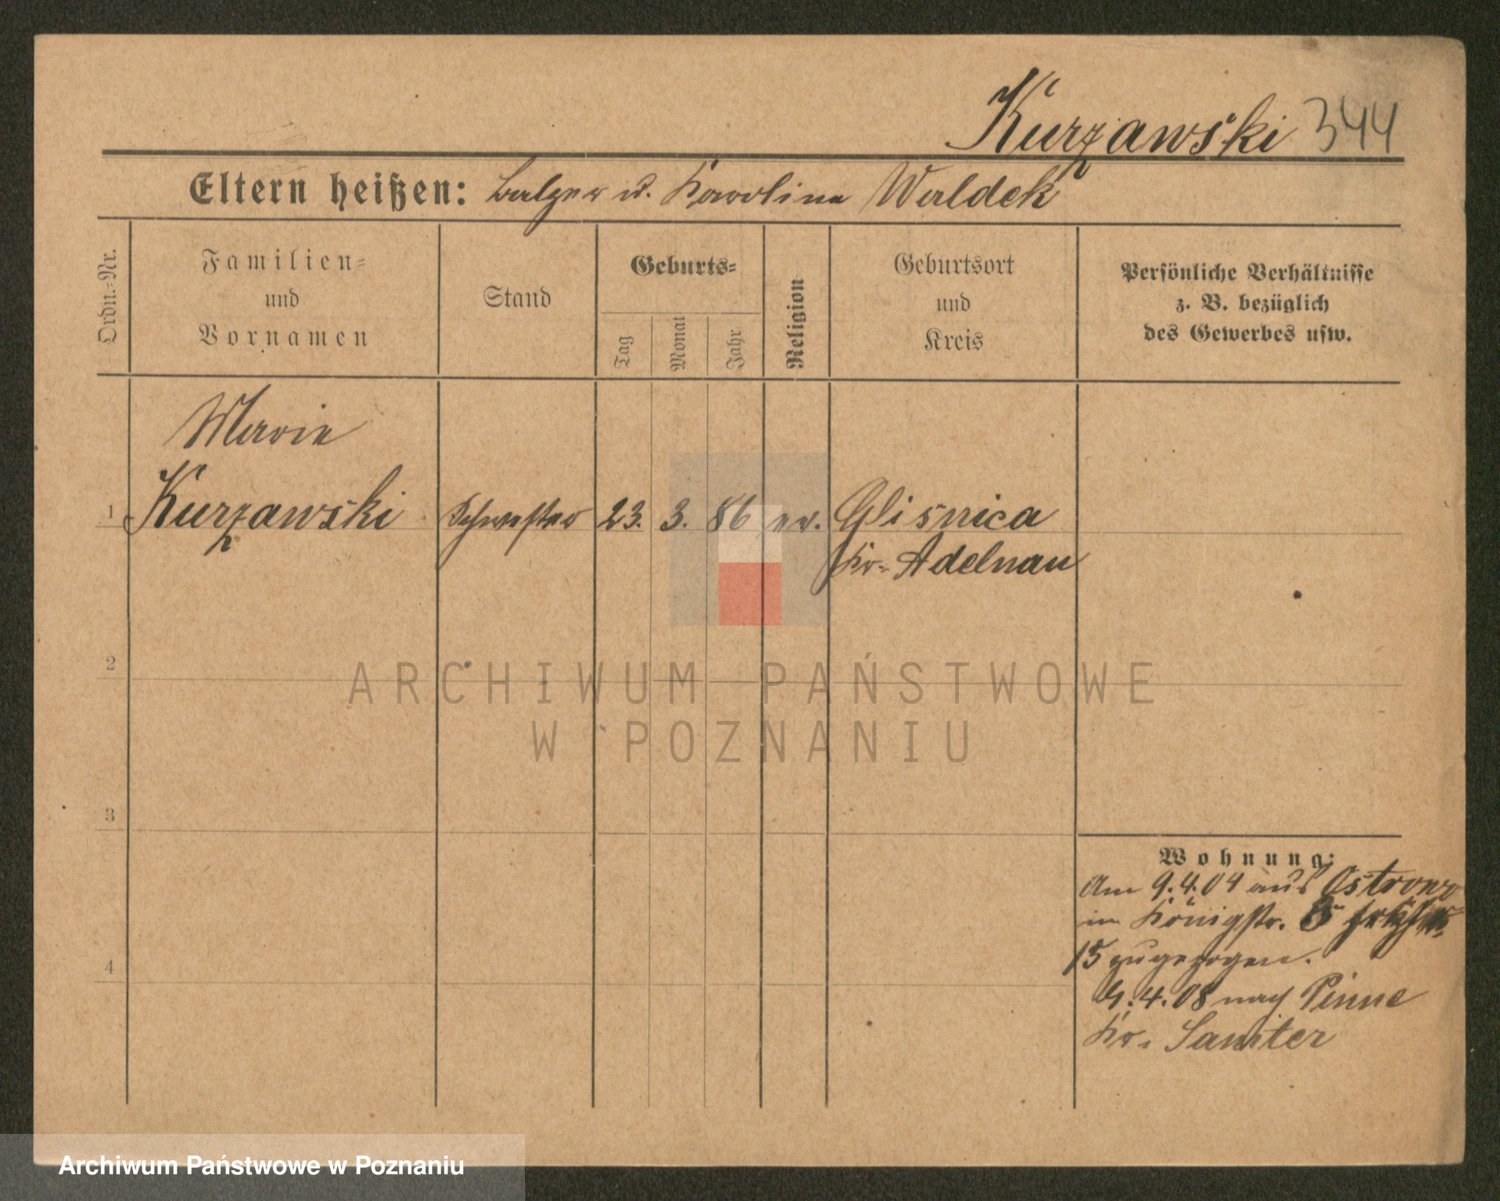 Kurzawski 344
Eltern heißen: Balzer u. Karolina Waldek
Ordn.-Nr.
Familien-
und
Vornamen
Stand
Geburts-
Tag
Monat
Jahr
Religion
Geburtsort
und
Kreis
Persönliche Verhältnisse
z. B. bezüglich
des Gewerbes usw.
Marie
1 Kurzawski Schwester 23. 3. 86 ev. Glisnica
Kr. Adelnau
2
ARCHIWUM PAŃSTWOWE
W POZNANIU
3
Wohnung:
Am 9.4.04 aus Ostrowo
in Königstr.
15 zugezogen.
4
4.08 nach Pinne
Kr. Samter
Archiwum Państwowe w Poznaniu